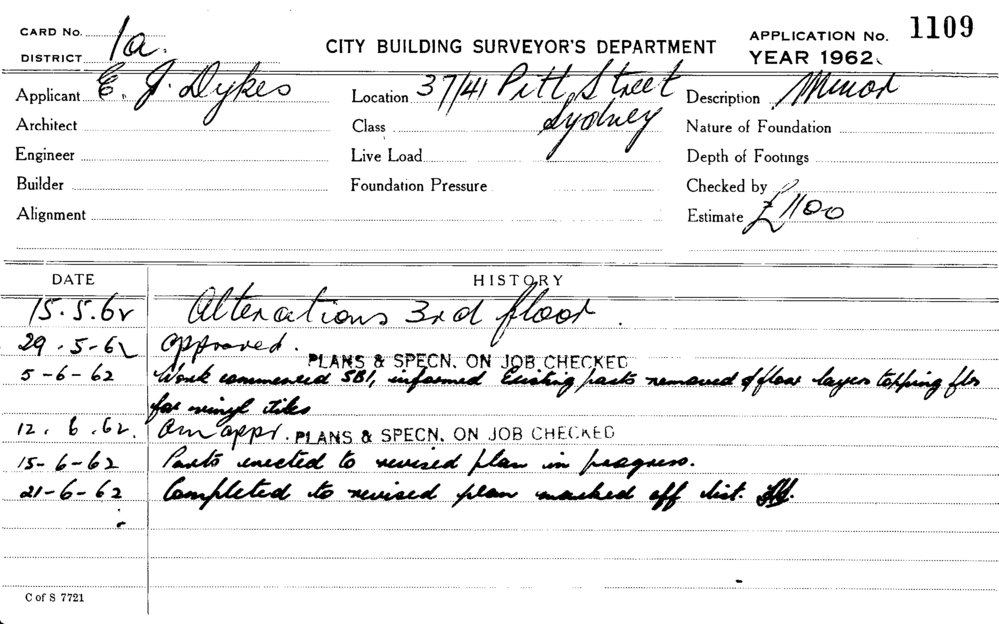 CARD No. 1a.
DISTRICT
CITY BUILDING SURVEYOR'S DEPARTMENT
APPLICATION No. 1109
YEAR 1962.
Applicant E. J. Dykes
Location 37/41 Pitt Street
Sydney
Description Minor
Architect
Class
Nature of Foundation
Engineer
Live Load
Depth of Footings
Builder
Foundation Pressure
Checked by
Alignment
Estimate £1100
DATE HISTORY
15.5.62 Alterations 3rd floor.
29.5-62 approved.
PLANS & SPECN. ON JOB CHECKED
5-6-62 Work commenced SBI, informed Existing parts removed & floor layers topping flr
for vinyl tiles
12.6.62. Am appr. PLANS & SPECN. ON JOB CHECKED
15-6-62 Parts erected to revised plan in progress.
21-6-62 Completed to revised plan marked off list.
C of S 7721